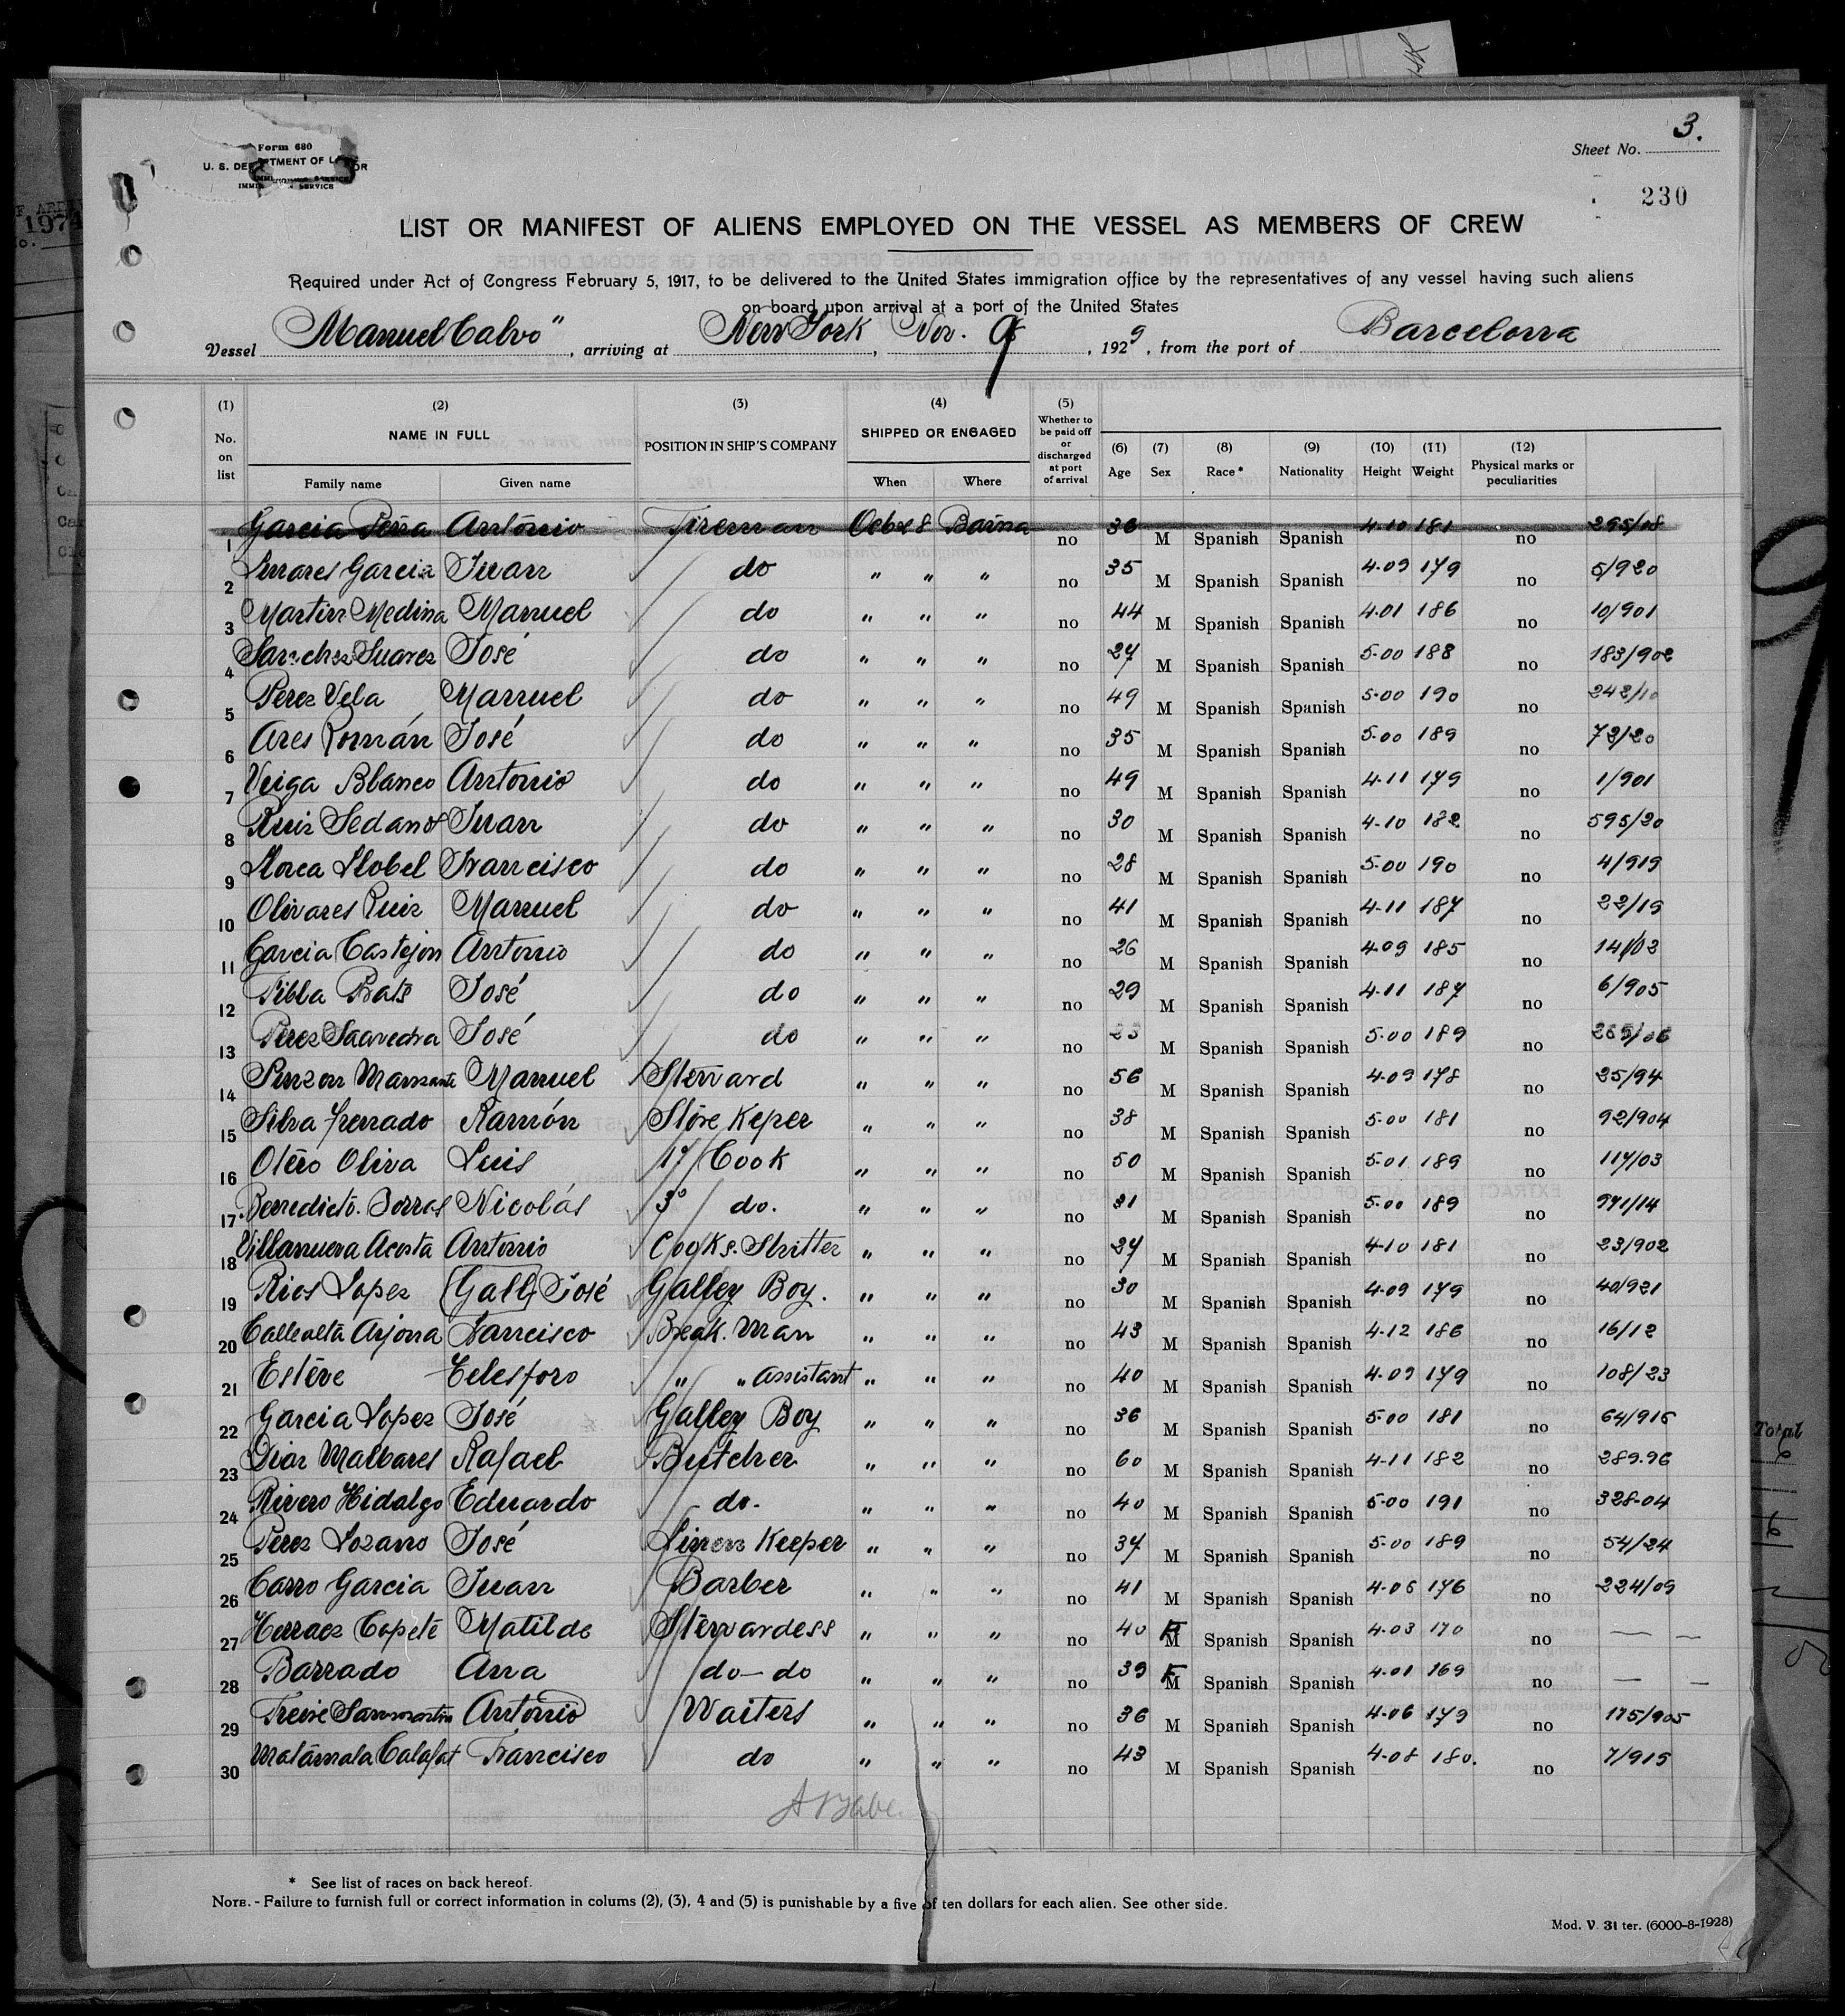 3.
Form 680
Sheet No.
U. S. DEPARTMENT OF LABOR
IMMIGRATION SERVICE
230
LIST OR MANIFEST OF ALIENS EMPLOYED ON THE VESSEL AS MEMBERS OF CREW
Required under Act of Congress February 5, 1917, to be delivered to the United States immigration office by the representatives of any vessel having such aliens
on board upon arrival at a port of the United States
Vessel Manuel Calvo", arriving at New York, Nov. 9, 1929, from the port of Barcelona
(1) (2) (3) (4) (5) (6) (7) (8) (9) (10) (11) (12)
No. on list NAME IN FULL Family name Given name POSITION IN SHIP'S COMPANY SHIPPED OR ENGAGED When Where Whether to be paid off or discharged at port of arrival Age Sex Race* Nationality Height Weight Physical marks or peculiarities
1 Garcia Peña Antonio Fireman Octe 8 Barna no 36 M Spanish Spanish 4.10 181 no 295/08
2 Linares Garcia Juan do " " " no 35 M Spanish Spanish 4.09 179 no 5/920
3 Martin Medina Manuel do " " " no 44 M Spanish Spanish 4.01 186 no 10/901
4 Sanchez Suarez José do " " " no 27 M Spanish Spanish 5.00 188 no 183/902
5 Perez Vela Manuel do " " " no 49 M Spanish Spanish 5.00 190 no 242/10
6 Ares Román José do " " " no 35 M Spanish Spanish 5.00 189 no 72/20
7 Veiga Blanco Antonio do " " " no 49 M Spanish Spanish 4.11 179 no 1/901
8 Ruiz Sedano Juan do " " " no 30 M Spanish Spanish 4-10 182 no 595/20
9 Llorca Llobel Francisco do " " " no 28 M Spanish Spanish 5.00 190 no 4/919
10 Olivares Ruiz Manuel do " " " no 41 M Spanish Spanish 4-11 187 no 22/19
11 Garcia Castejon Antonio do " " " no 26 M Spanish Spanish 4.09 185 no 14/03
12 Prats José do " " " no 29 M Spanish Spanish 4.11 187 no 6/905
13 Perez Saavedra José do " " " no M Spanish Spanish 5.00 189 no
14 Pinzon Manuel Steward " " " no 56 M Spanish Spanish 4.09 178 no 25/94
15 Silva Ramón Store Keper " " " no 38 M Spanish Spanish 5.00 181 no 92/904
16 Otero Oliva Luis 1º Cook " " " no 50 M Spanish Spanish 5.01 189 no 117/03
17 Benedicto. Borras Nicolás 3º do. " " " no 31 M Spanish Spanish 5.00 189 no 971/14
18 Villanueva Acosta Antonio Cooks. " " " no 27 M Spanish Spanish 4-10 181 no 23/902
19 Rios Lopez (Gall) José Galley Boy. " " " no 30 M Spanish Spanish 4.09 179 no 40/921
20 Callealta Arjona Francisco Break. Man " " " no 43 M Spanish Spanish 4-12 186 no 16/12
21 Estéve Telesforo " " Assistant " " " no 40 M Spanish Spanish 4.09 179 no 108/23
22 Garcia Lopez José Galley Boy " " " no 36 M Spanish Spanish 5.00 181 no 64/916
23 Diaz Malvares Rafael Butcher " " " no 60 M Spanish Spanish 4-11 182 no 289.96
24 Rivero Hidalgo Eduardo do. " " " no 40 M Spanish Spanish 5.00 191 no 328-04
25 Perez Lozano José Linen Keeper " " " no 37 M Spanish Spanish 5.00 189 no 54/24
26 Carro Garcia Juan Barber " " " no 41 M Spanish Spanish 4.06 176 no 224/09
27 Herraez Copete Matilde Stewardess " " " no 40 F M Spanish Spanish 4.03 170 no — —
28 Barrado Ana do — do " " " no 39 F M Spanish Spanish 4.01 169 no — —
29 Freire Sanmartin Antonio Waiters " " " no 36 M Spanish Spanish 4.06 179 no 175/905
30 Matamala Calafat Francisco do " " " no 43 M Spanish Spanish 4-08 180. no 7/915
* See list of races on back hereof.
NOTE. - Failure to furnish full or correct information in colums (2), (3), 4 and (5) is punishable by a five of ten dollars for each alien. See other side.
Mod. V. 31 ter. (6000-8-1928)
1974
Total